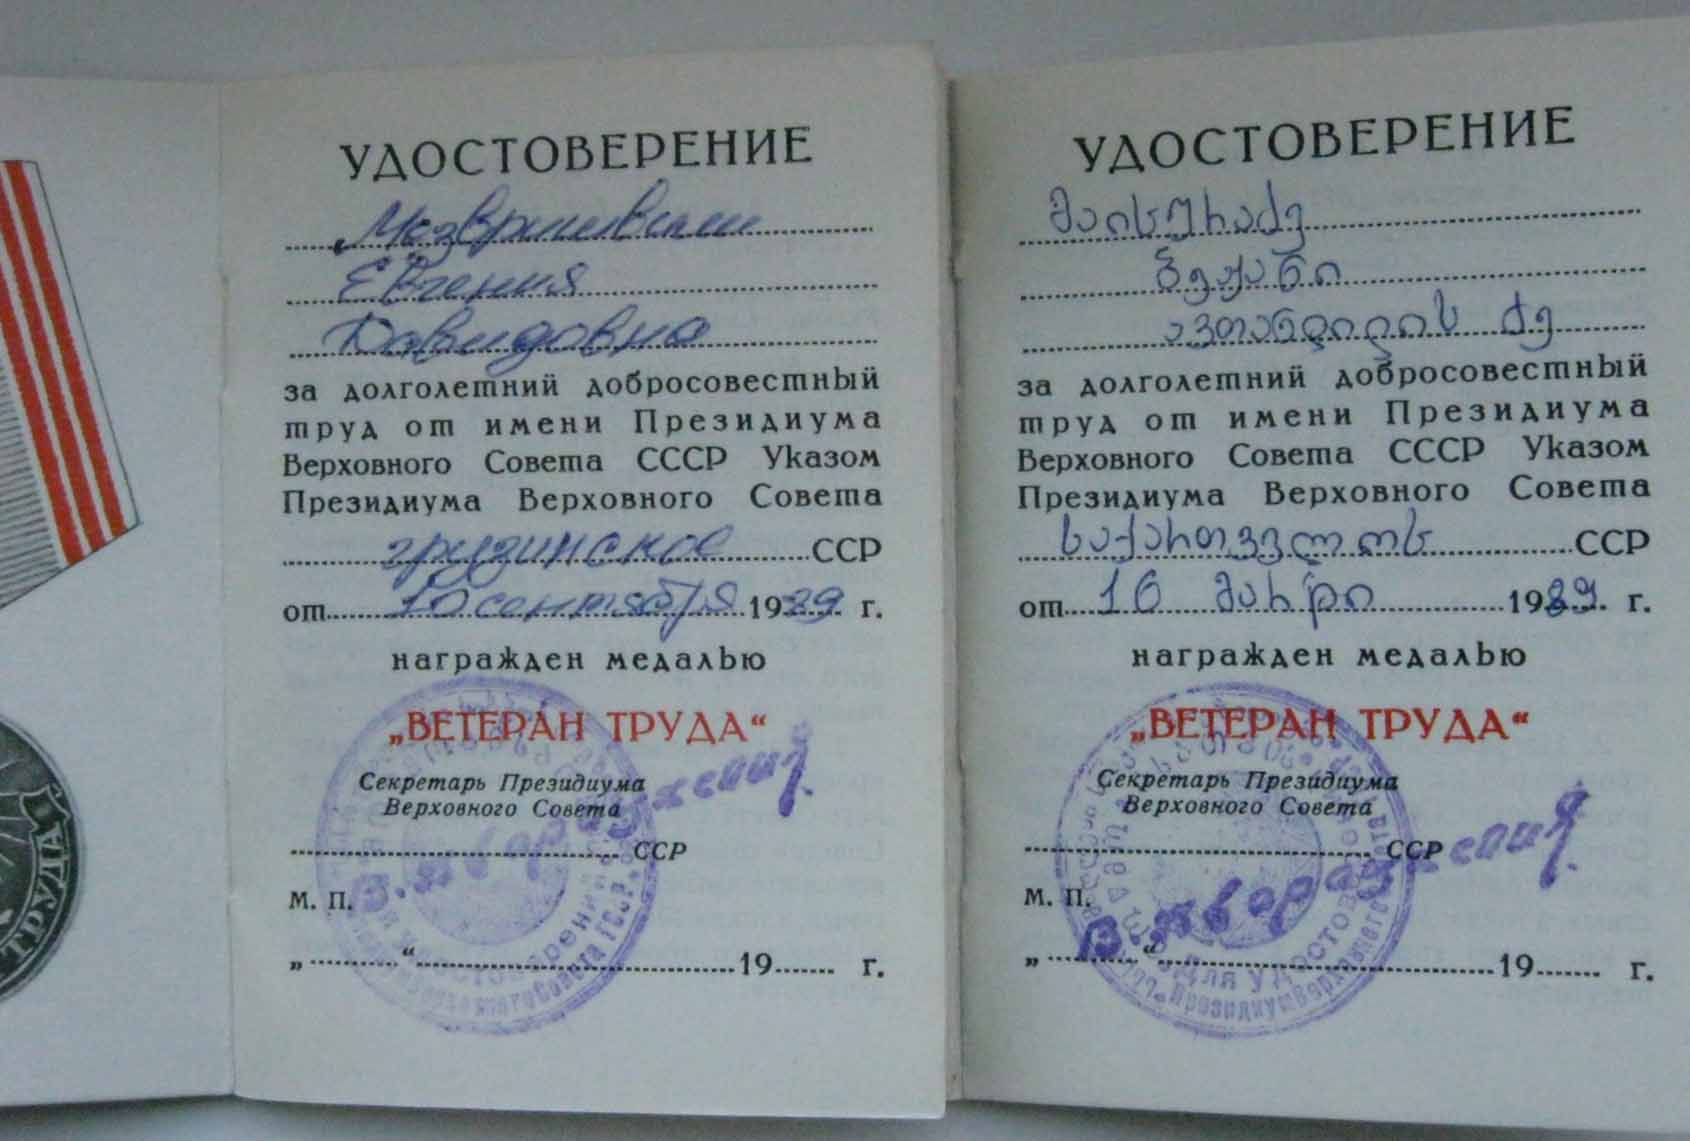 УДОСТОВЕРЕНИЕ
Мезвришвили
Евгения
Давидовна
за долголетний добросовестный
труд от имени Президиума
Верховного Совета СССР Указом
Президиума Верховного Совета
грузинское ССР
от 10 сентября 1989 г.
награжден медалью
„ВЕТЕРАН ТРУДА“
Секретарь Президиума
Верховного Совета
ССР
М. П.
„ “ 19 г.
УДОСТОВЕРЕНИЕ
მაისურაძე
ჟეჟანი
ავთანდილის ძე
за долголетний добросовестный
труд от имени Президиума
Верховного Совета СССР Указом
Президиума Верховного Совета
საქართველოს ССР
от 16 მარტი 1989 г.
награжден медалью
„ВЕТЕРАН ТРУДА“
Секретарь Президиума
Верховного Совета
ССР
М. П.
„ “ 19 г.
ТРУДА